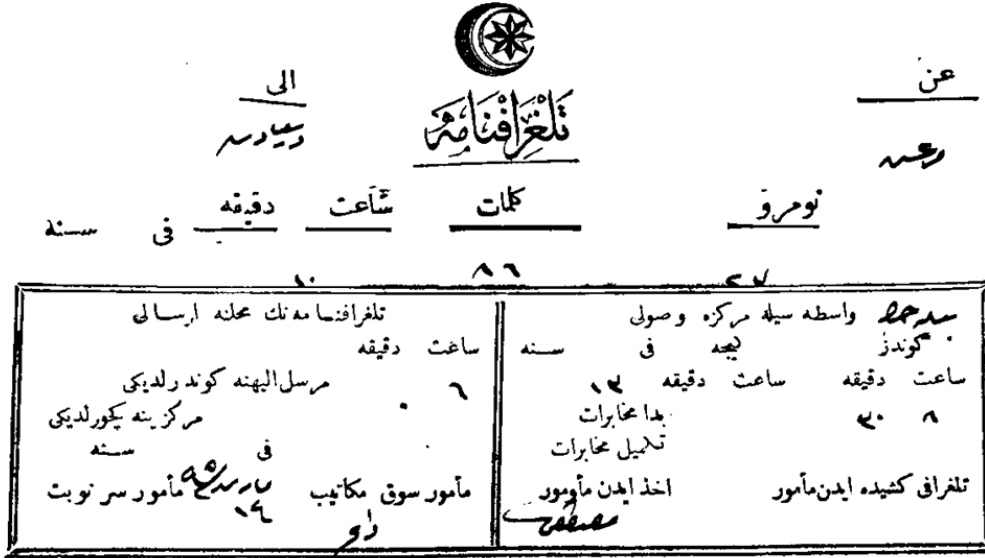 عن
الى
تلغرافنامه
درسعادت
نومرو كلمات ساعت دقيقه فى سنه
٢٧ ٨٦ ١٠
واسطه سيله مركزه وصولى
گوندز گيجه فى سنه
ساعت دقيقه ساعت دقيقه
٨ ٣٠ ١٣
بدا مخابرات
تكميل مخابرات
تلغرافى كشيده ايدن مأمور اخذ ايدن مأمور
تلغرافنامه نك محلنه ارسالى
ساعت دقيقه
٦ مرسل اليهنه كوندرلديكى
مركزينه كچورلديكى
فى سنه
مأمور سوق مكاتيب مأمور سر نوبت
١٤